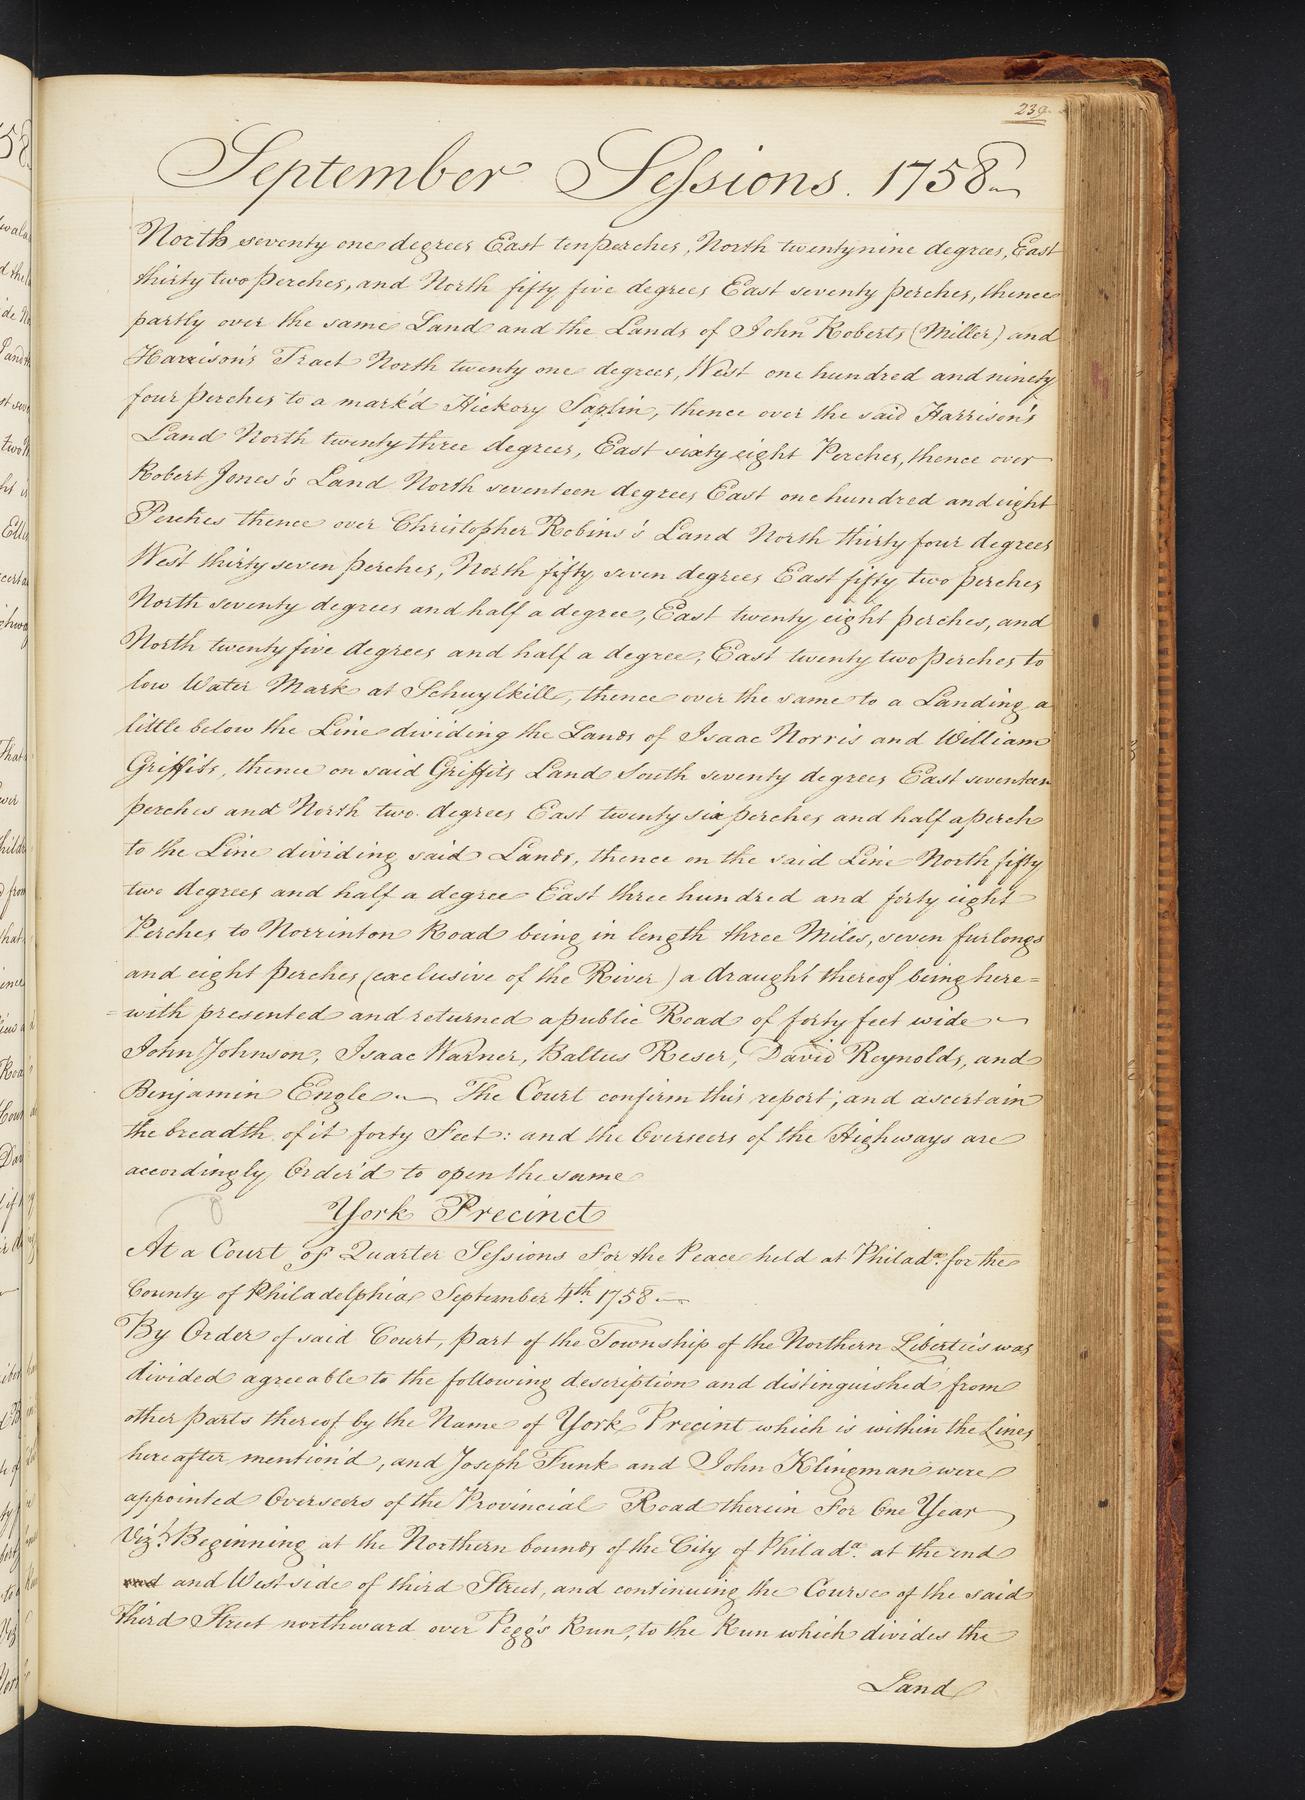 239
September Sessions. 1758
North seventy one degrees East ten perches, North twenty nine degrees, East
thirty two perches, and North fifty five degrees East seventy perches, thence
partly over the same Land and the Lands of John Roberts (Miller) and
Harrison's Tract North twenty one degrees, West one hundred and ninety
four perches to a mark'd Hickory Saplin, thence over the said Harrison's
Land North twenty three degrees, East sixty eight Perches, thence over
Robert Jones's Land North seventeen degrees East one hundred and eight
Perches thence over Christopher Robins's Land North thirty four degrees
West thirty seven perches, North fifty seven degrees East fifty two perches
North seventy degrees and half a degree, East twenty eight perches, and
North twenty five degrees and half a degree, East twenty two perches to
low Water Mark at Schuylkill, thence over the same to a Landing a
little below the Line dividing the Lands of Isaac Norris and William
Griffits, thence on said Griffits Land South seventy degrees East seventeen
perches and North two degrees East twenty six perches and half a perch
to the Line dividing said Lands, thence on the said Line North fifty
two degrees and half a degree East three hundred and forty eight
Perches to Norrinton Road being in length three Miles, seven furlongs
and eight perches (exclusive of the River) a draught thereof being here=
=with presented and returned a public Road of forty feet wide
John Johnson, Isaac Warner, Baltus Reser, David Reynolds, and
Benjamin Engle The Court confirm this report; and ascertain
the breadth of it forty Feet: and the Overseers of the Highways are
accordingly Order'd to open the same
York Precinct
At a Court of Quarter Sessions For the Peace held at Philada. for the
County of Philadelphia September 4th. 1758
By Order of said Court, part of the Township of the Northern Liberties was
divided agreeable to the following description and distinguished from
other parts thereof by the Name of York Precint which is within the Lines
hereafter mention'd, and Joseph Funk and John Klingman were
appointed Overseers of the Provincial Road therein For One Year
Vizt. Beginning at the Northern bounds of the City of Philada. at the end
and West side of third Street, and continuing the Course of the said
third Street northward over Pegg's Run, to the Run which divides the
Land